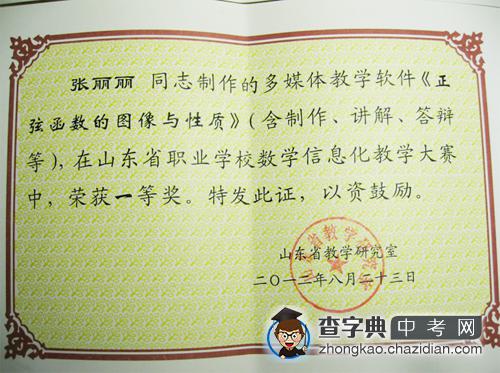 张丽丽 同志制作的多媒体教学软件《正
弦函数的图像与性质》(含制作、讲解、答辩
等),在山东省职业学校数学信息化教学大赛
中,荣获一等奖。特发此证,以资鼓励。
山东省教学研究室
二〇一二年八月二十三日
山东省教学研究室
查字典中考网
zhongkao.chazidian.com